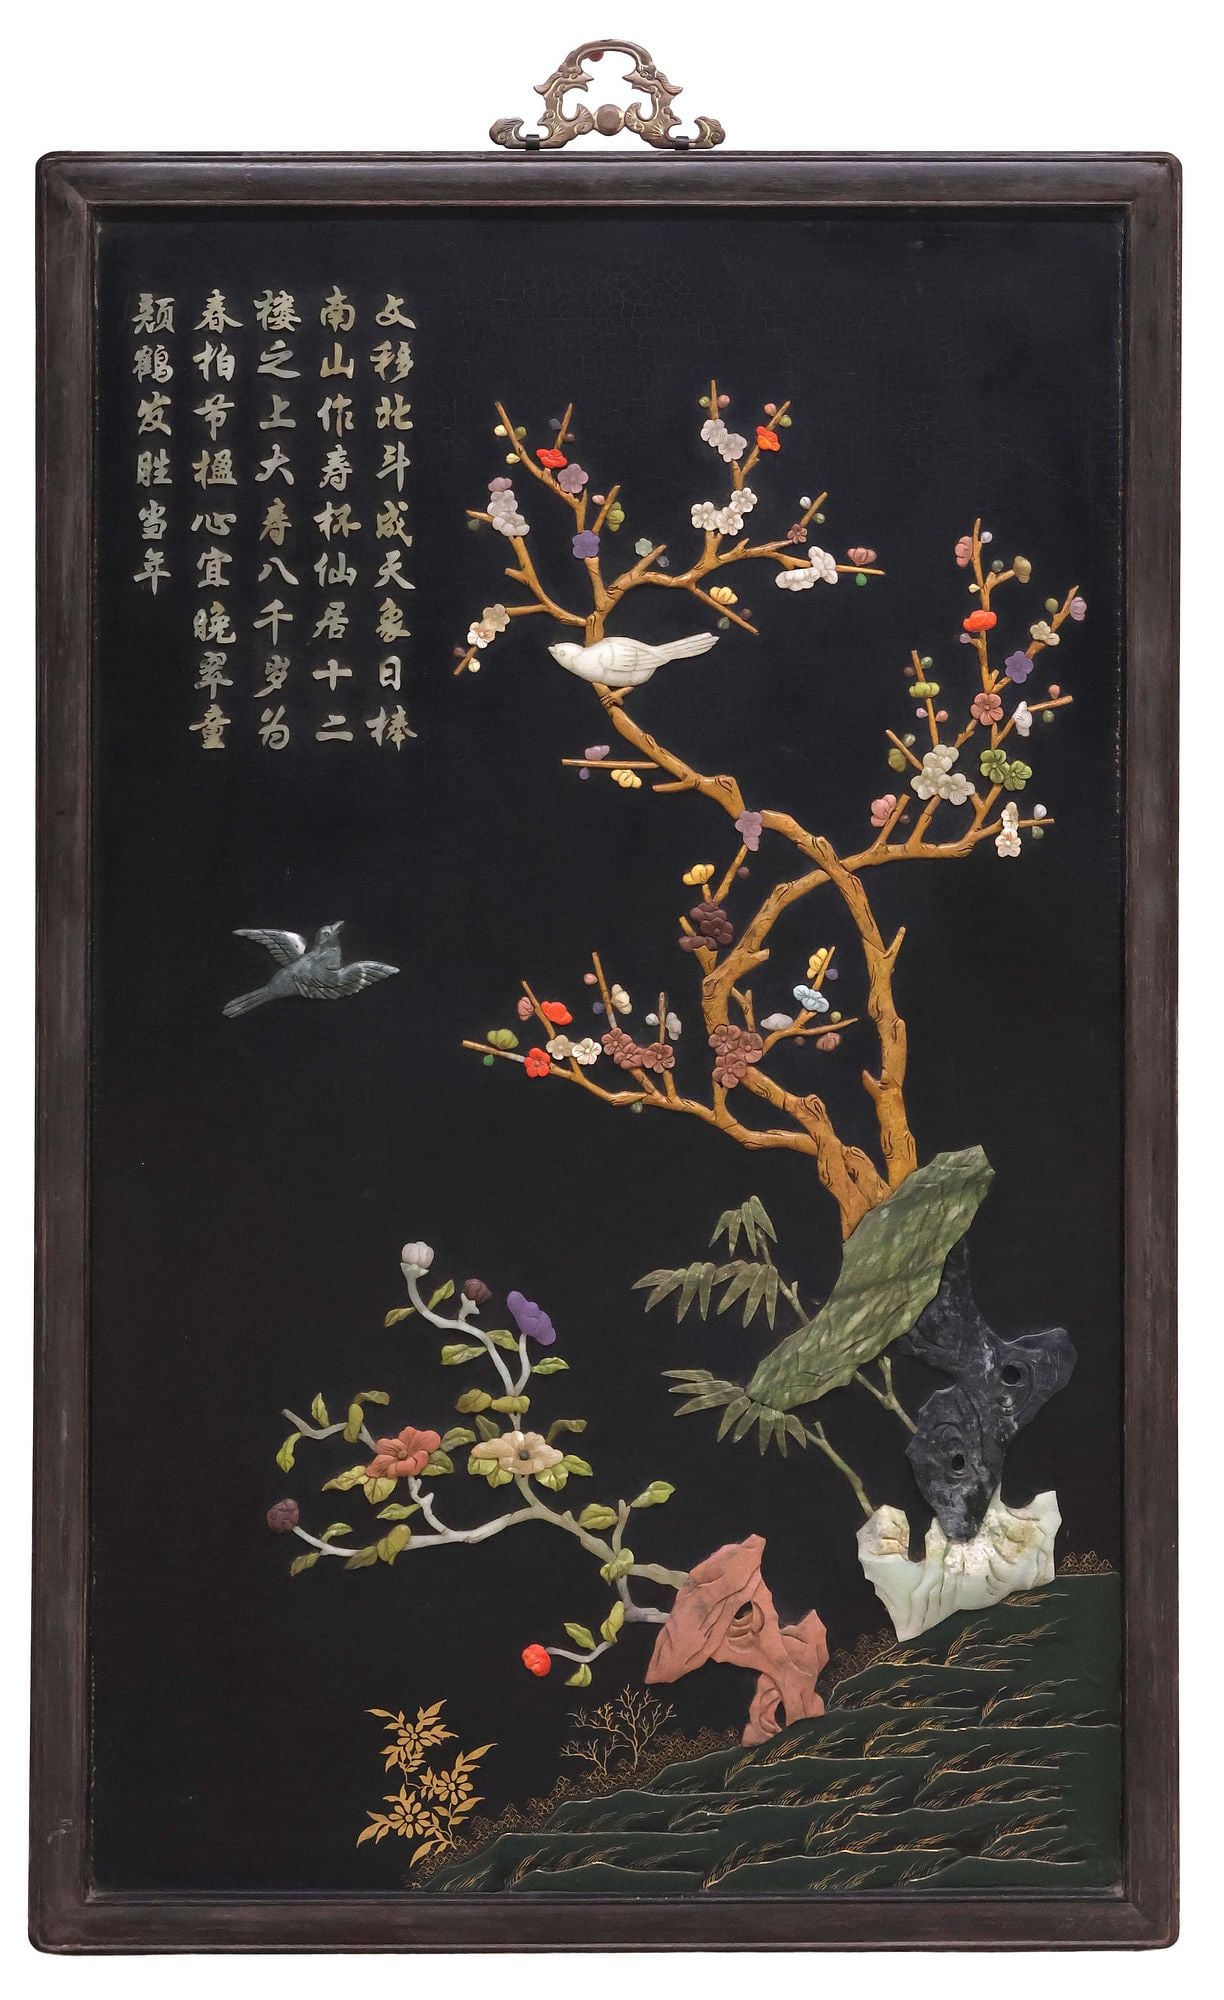 文移北斗成天象日捧
南山作寿杯仙居十二
楼之上大寿八千岁为
春柏节楹心宜晚翠童
颜鹤发胜当年